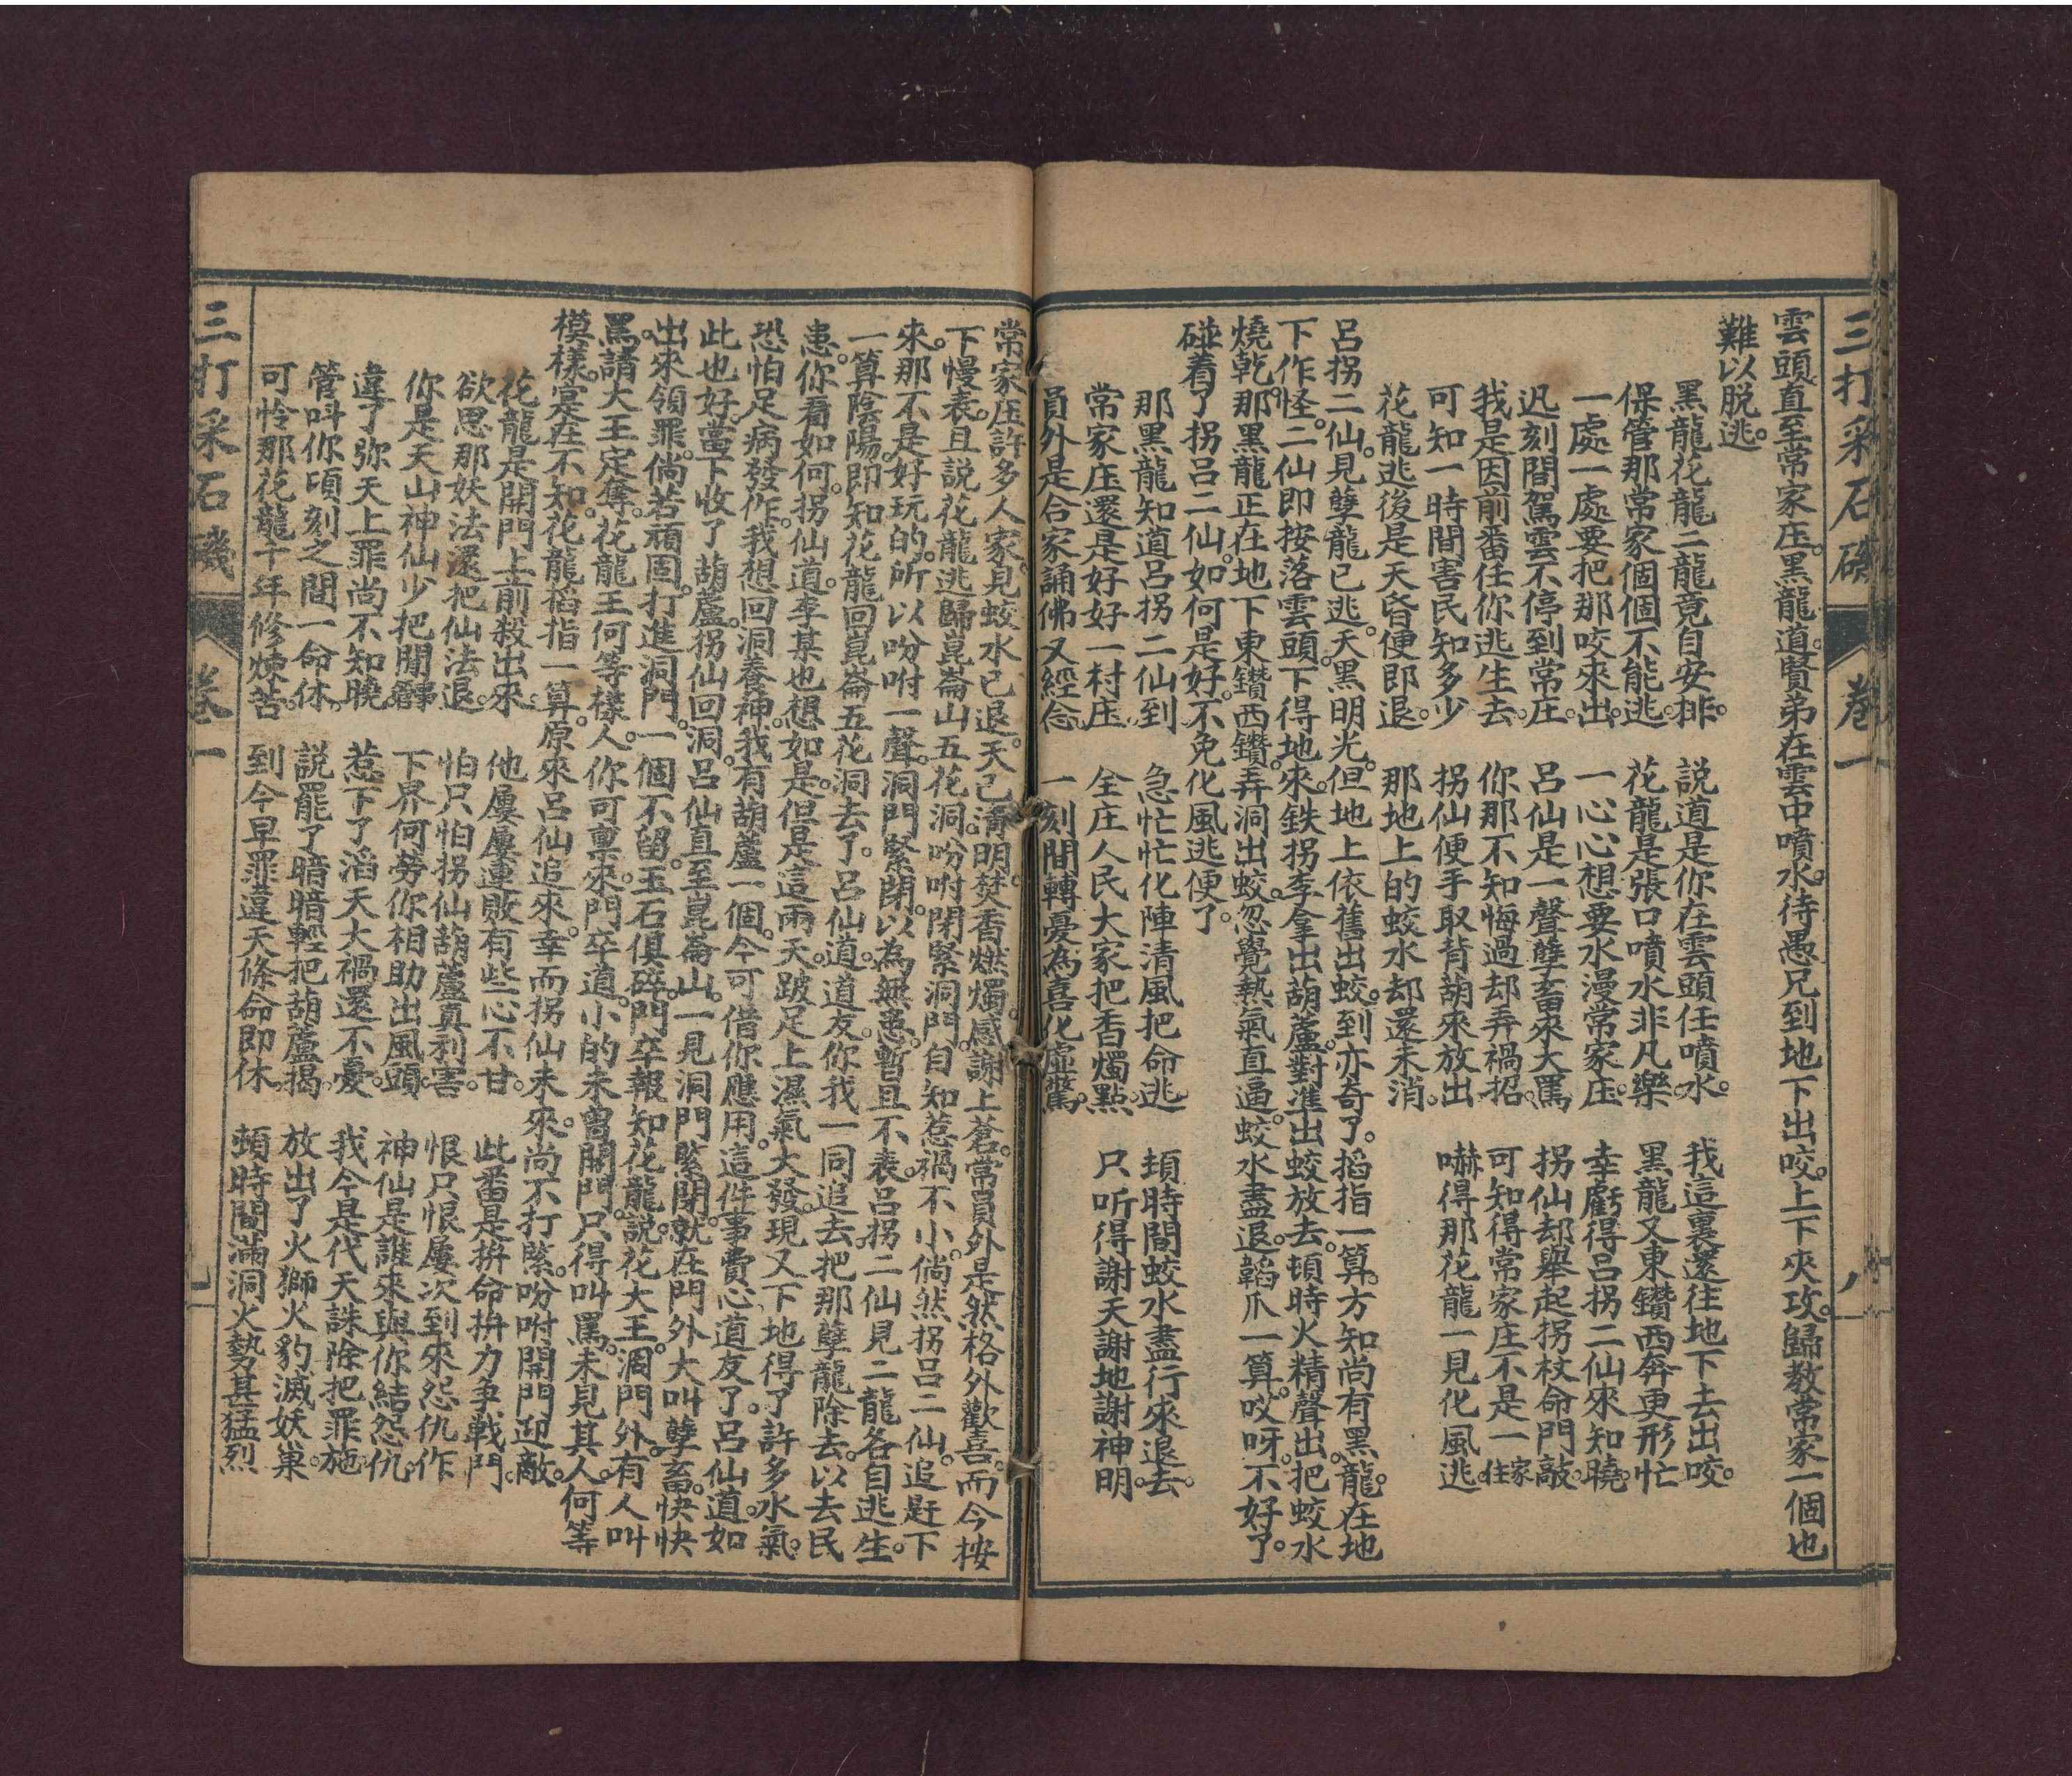 三打采石磯 卷一 八
雲頭直至常家庄。黑龍道。賢弟在雲中噴水。待愚兄到地下出咬。上下夾攻。歸教常家一個也
難以脱逃。
黑龍花龍二龍竟自安排。 說道是你在雲頭任噴水。 我這裏還往地下去出咬。
保管那常家個個不能逃。 花龍是張口噴水非凡樂 黑龍又東鑽西奔更形忙
一處一處要把那咬來出。 一心心想要水漫常家庄。 幸虧得呂拐二仙來知曉。
迅刻間駕雲不停到常庄。 呂仙是一聲孽畜來大罵 拐仙却舉起拐杖命門敲。
我是因前番任你逃生去。 你那不知悔過却弄禍招。 可知得常家庄不是一家住
可知一時間害民知多少 拐仙便手取背葫來放出 嚇得那花龍一見化風逃。
花龍逃後是天昏便即退。 那地上的蛟水却還未消。
呂拐二仙。見孽龍已逃。天黑明光。但地上依舊出蛟。到亦奇了。掐指一算。方知尚有黑龍。在地
下作怪。二仙即按落雲頭。下得地來。鉄拐李拿出葫蘆。對準出蛟放去。頃時火精聲出。把蛟水
燒乾。那黑龍正在地下東鑽西鑽。弄洞出蛟。忽覺熱氣直逼。蛟水盡退。韜爪一算。哎呀。不好了。
碰着了拐呂二仙。如何是好。不免化風逃便了。
那黑龍知道呂拐二仙到 急忙忙化陣清風把命逃。 頃時間蛟水盡行來退去。
常家庄還是好好一村庄 全庄人民大家把香燭點。 只听得謝天謝地謝神明。
員外是合家誦佛又經念 一刻間轉憂為喜化虛驚。
常家庄許多人家。見蛟水已退。天已清明。焚香燃燭。感謝上蒼。常員外是然格外歡喜。而今按
下慢表。且説花龍逃歸崑崙山五花洞。吩咐閉緊洞門。自知惹禍不小。倘然拐呂二仙。追趕下
來。那不是好玩的。所以吩咐一聲。洞門緊閉。以為無恙。暫且不表。呂拐二仙見二龍各自逃生。
一算陰陽。即知花龍回崑崙五花洞去了。呂仙道。道友。你我一同追去。把那孽龍除去。以去民
患。你看如何。拐仙道。李某也想如是。但是這兩天。跛足上濕氣大發。現又下地得了許多水氣。
恐怕足病發作。我想回洞養神。我有葫蘆一個。今可借你應用。這件事費心道友了。呂仙道。如
此也好。當下收了葫蘆。拐仙回洞。呂仙直至崑崙山。一見洞門緊閉。就在門外大叫孽畜。快快
出來領罪。倘若頑固。打進洞門。一個不留。玉石俱碎。門卒報知花龍。説。花大王。洞門外。有人叫
罵。請大王定奪。花龍王何等樣人。你可禀來。門卒道。小的未曾開門。只得叫罵。未見其人。何等
模樣。實在不知。花龍掐指一算。原來呂仙追來。幸而拐仙未來。尚不打緊。吩咐開門迎敵。
花龍是開門上前殺出來。 他屢屢連敗有些心不甘。 此番是拚命拚力爭戰鬥。
欲思那妖法還把仙法退。 怕只怕拐仙葫蘆真利害。 恨只恨屢次到來怨仇作
你是天山神仙少把閒事。 下界何勞你相助出風頭。 神仙是誰來與你結怨仇。
違了弥天上罪尚不知曉。 惹下了滔天大禍還不憂。 我今是代天誅除把罪施。
管叫你頃刻之間一命休。 説罷了暗暗輕把葫蘆揭。 放出了火獅火豹滅妖巢。
可怜那花龍千年修煉苦。 到今早罪違天條命即休。 頓時間滿洞火勢甚猛烈
三打采石磯 卷一